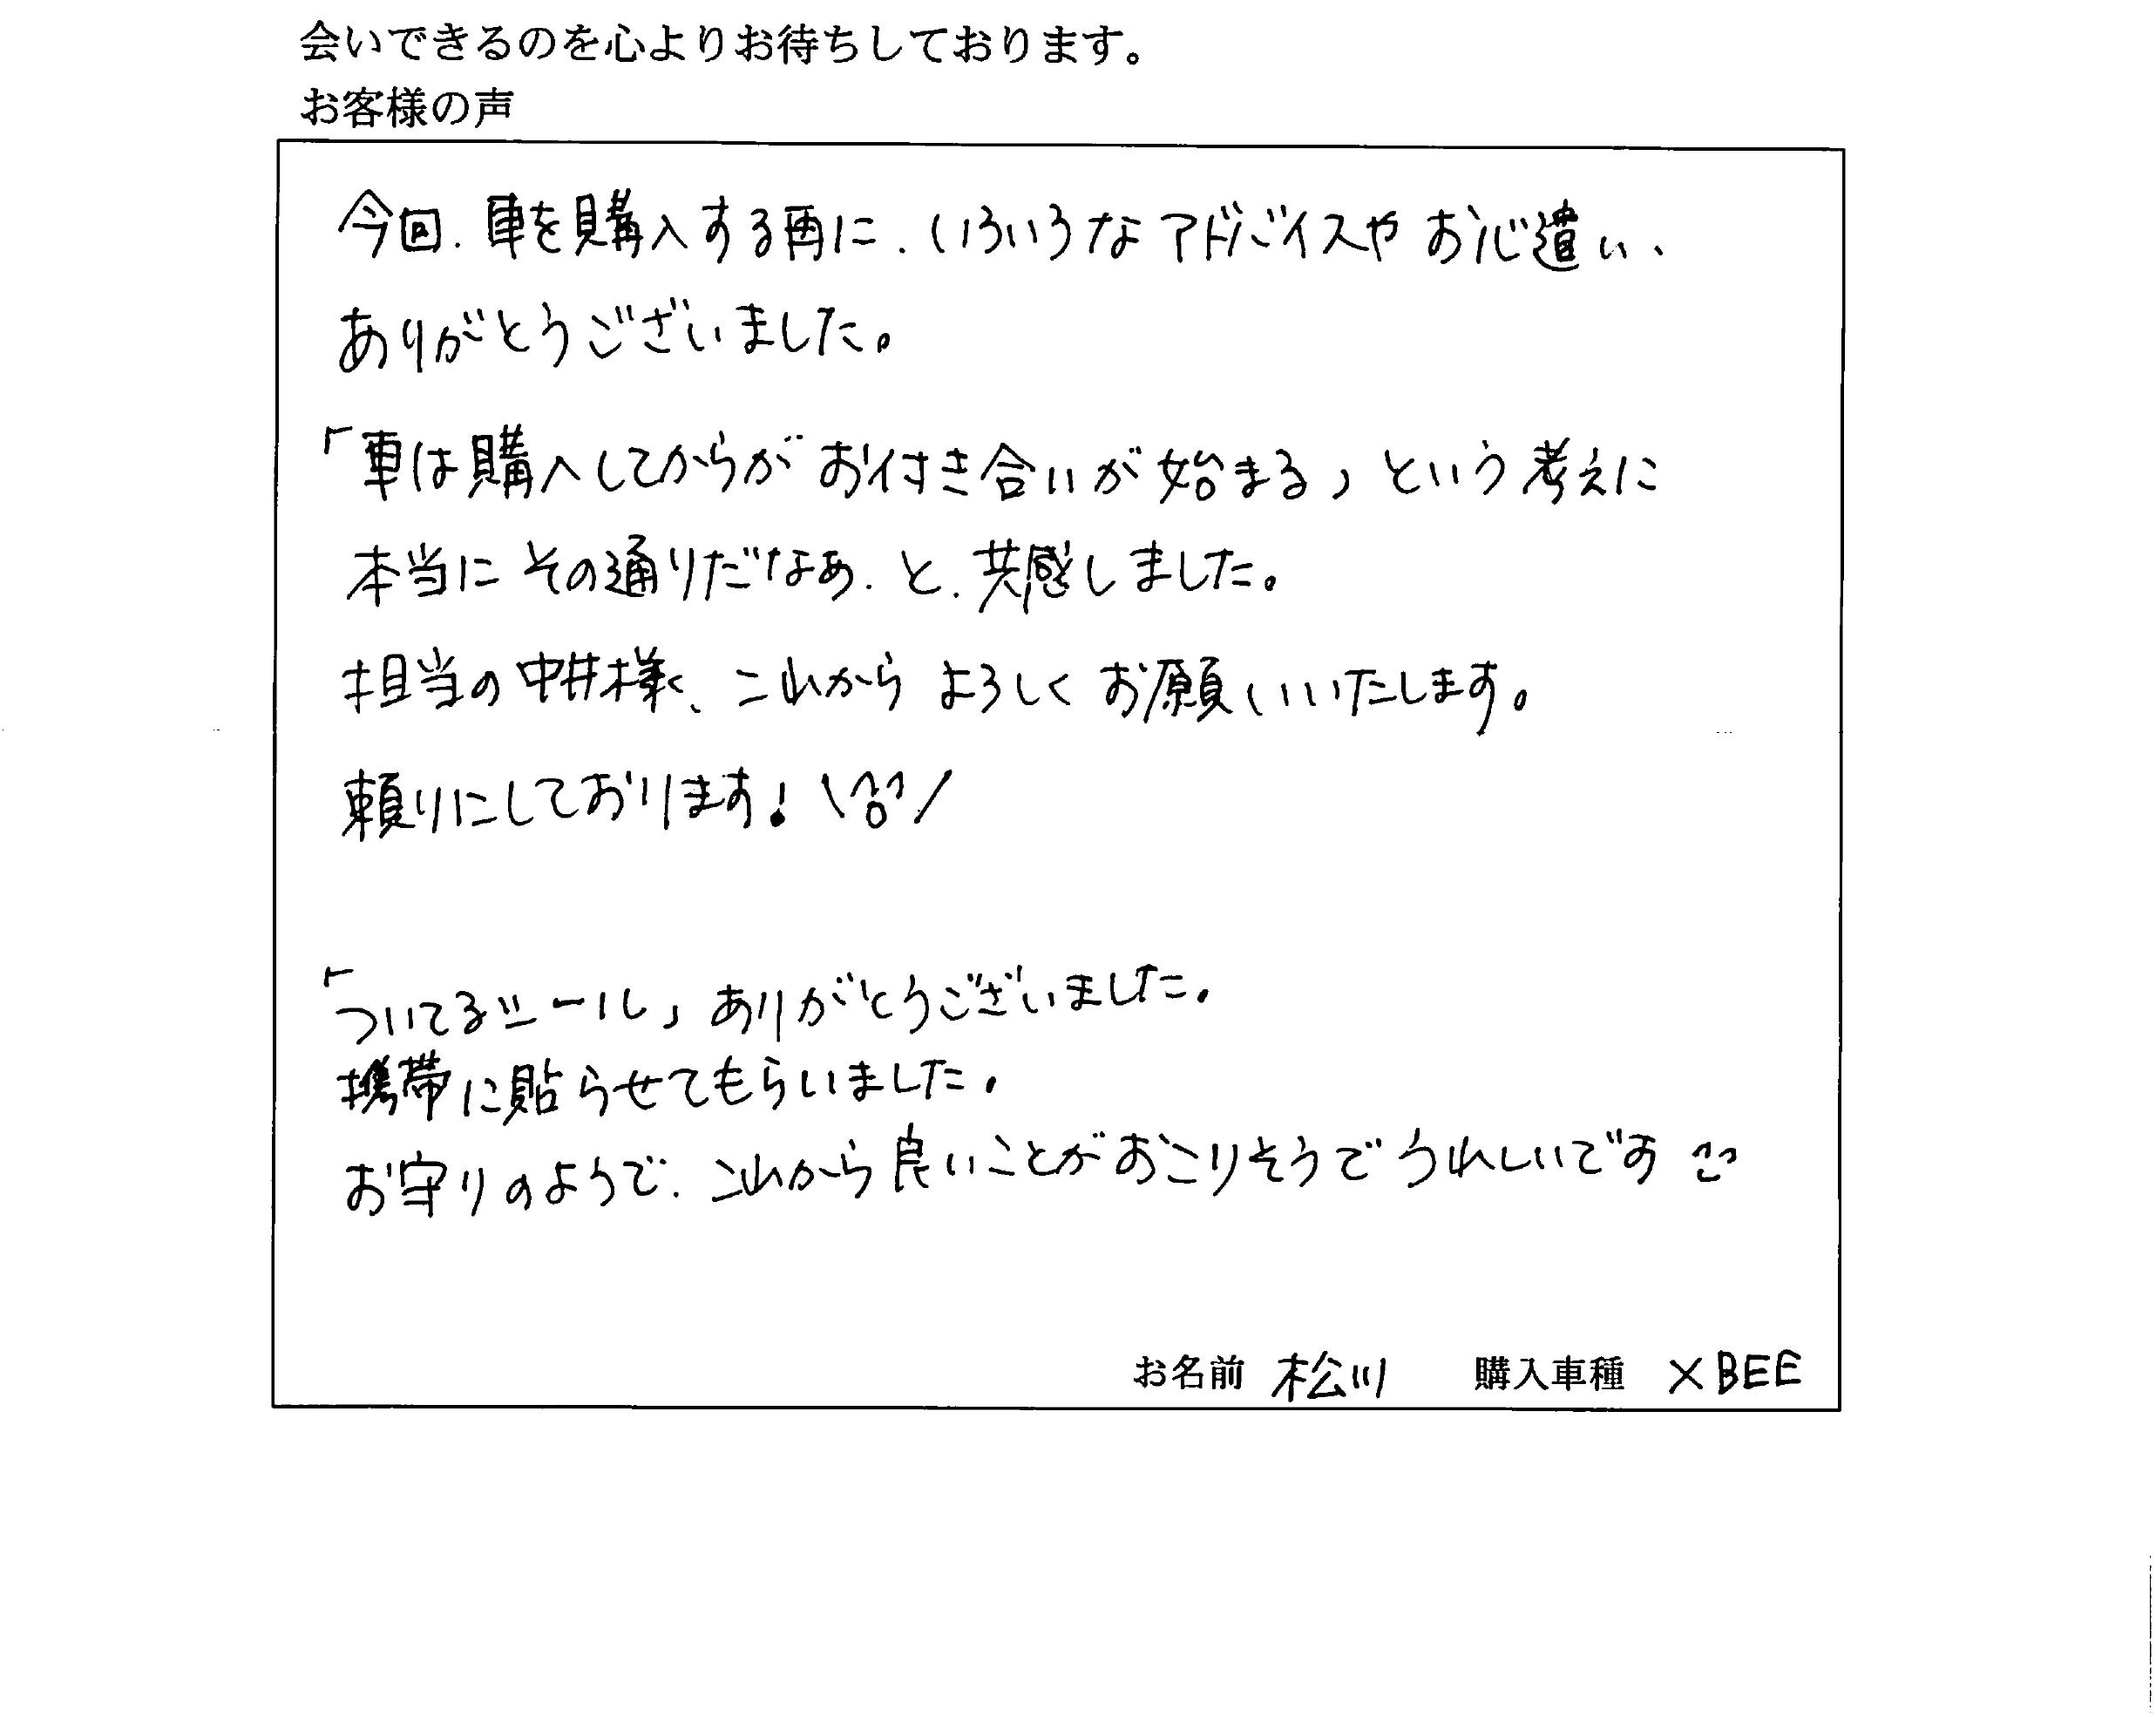 会いできるのを心よりお待ちしております。
お客様の声
今回、車を購入する再に、いろいろなアドバイスやお心遣い、
ありがとうございました。
「車は購入してからがお付き合いが始まる」という考えに
本当にその通りだなぁ、と、共感しました。
担当の中井様、これからよろしくお願いいたします。
頼りにしております！\(^o^)/
「ついてるシール」ありがとうございました。
携帯に貼らせてもらいました。
お守りのようで、これから良いことがおこりそうでうれしいです
お名前 松川 購入車種 XBEE